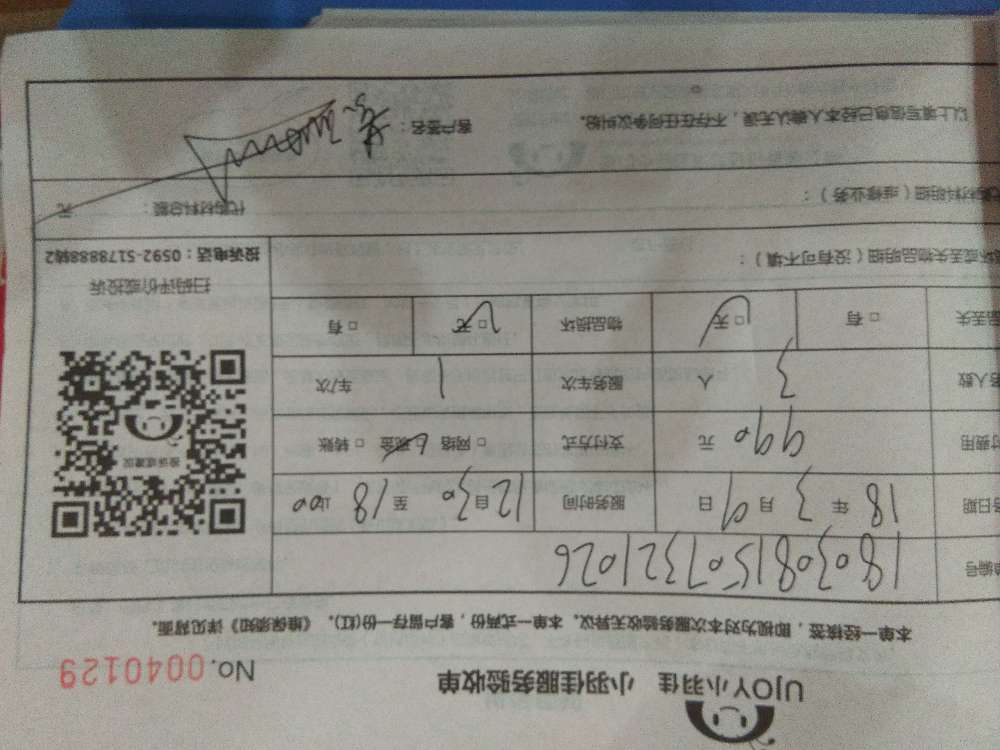 UJOY小羽佳 小羽佳服务验收单
No.0040129
本单一经接签，即视为对本次服务验收无异议。本单一式两份，客户留存一份(红)，《维保须知》详见背面。
编号 1803081507321026
日期 18 年 3 月 9 日 服务时间 12 30 自 至 18 00 止
费用 990 元 支付方式 □ 网络 □ 现金 □ 转账
人数 3 人 服务车次 1 车/次
丢失 □ 有 □ 无 物品损坏 □ 无 □ 有
投诉或建议
扫码评价或投诉
投诉电话：0592-5178888转2
坏或丢失物品明细（没有可不填）：
材料明细（维修业务）： 代购材料总额： 元
以上填写信息已经本人确认无误，不存在任何争议纠纷。 客户签名：